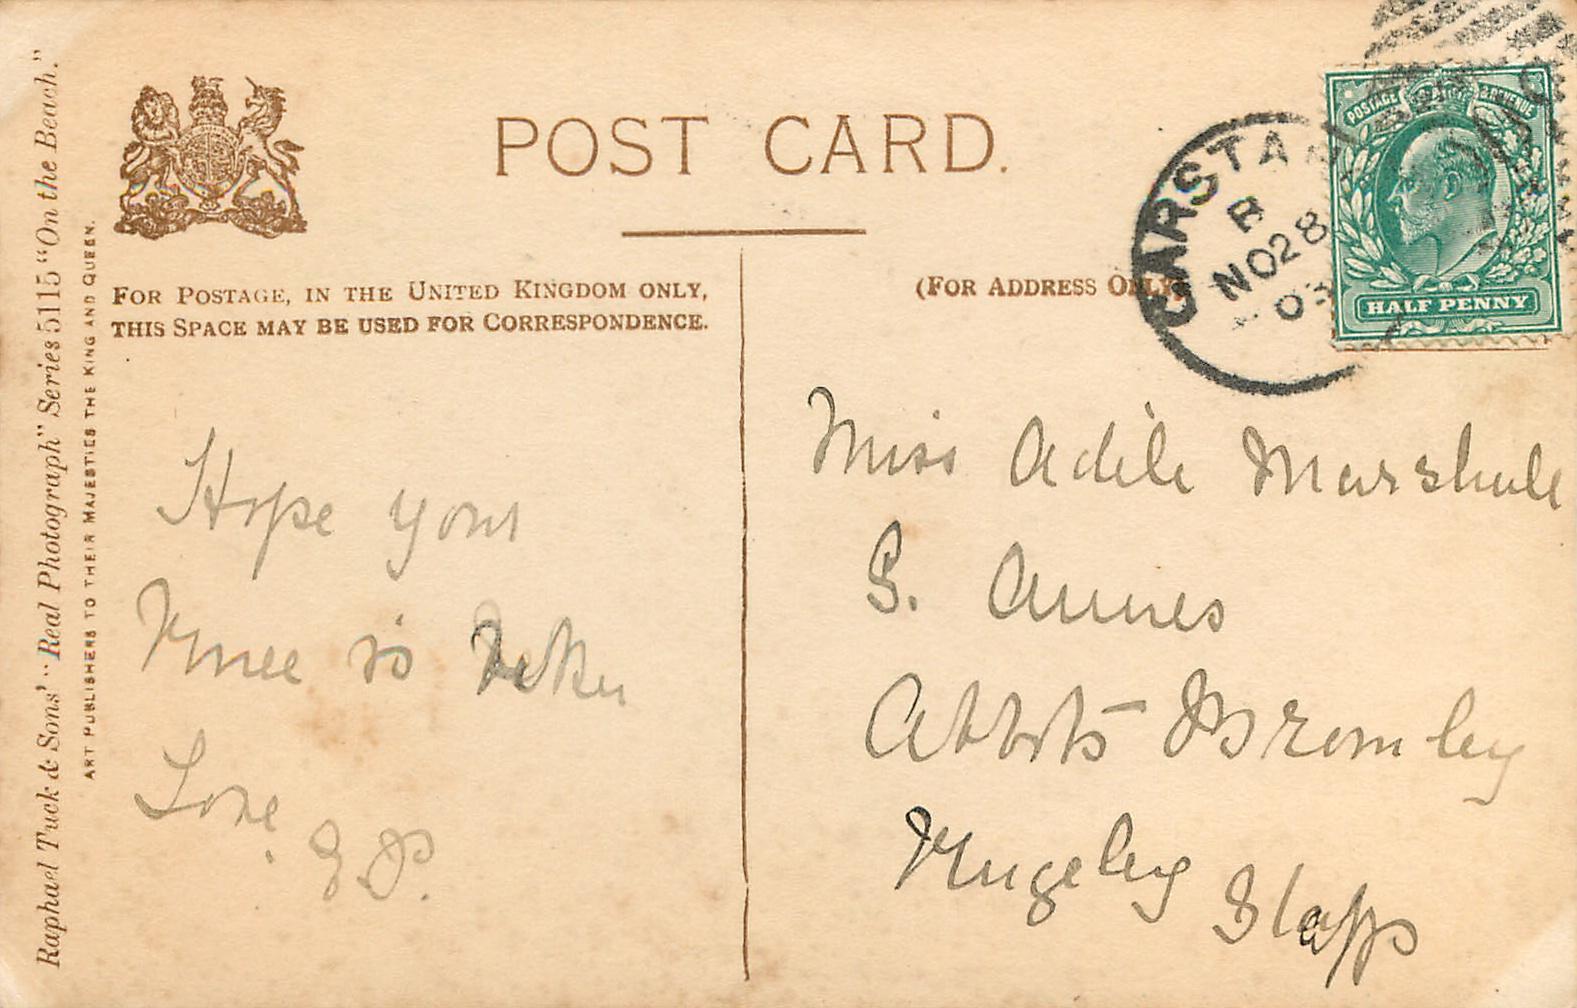 Raphael Tuck & Sons' "Real Photograph" Series 5115 "On the Beach."
ART PUBLISHERS TO THEIR MAJESTIES THE KING AND QUEEN.
POST CARD.
FOR POSTAGE, IN THE UNITED KINGDOM ONLY,
THIS SPACE MAY BE USED FOR CORRESPONDENCE.
(FOR ADDRESS ONLY)
B
NO 28
03
POSTAGE & REVENUE
HALF PENNY
Hope your
Knee is
Love
Miss Adéle Marshall
S. Annes
Abbots Bromley
Rugeley Staffs